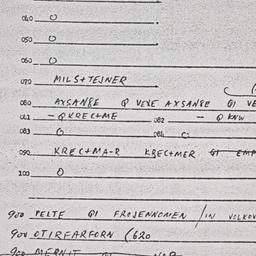 040 O
050 O
060 O
070 MILS+TEJNER
080 AXSANGE Q VEXE AXSANGE QI VE
081 - QKRECTME 082 - Q KNW
083 O 084 O
090 KREC+MA-R KRECTMER QI EMP
100 O
900 PELTE QI FROJENNOMEN / IN VOLKOV
900 OTIREARFORN (620
900 MERNIT QI